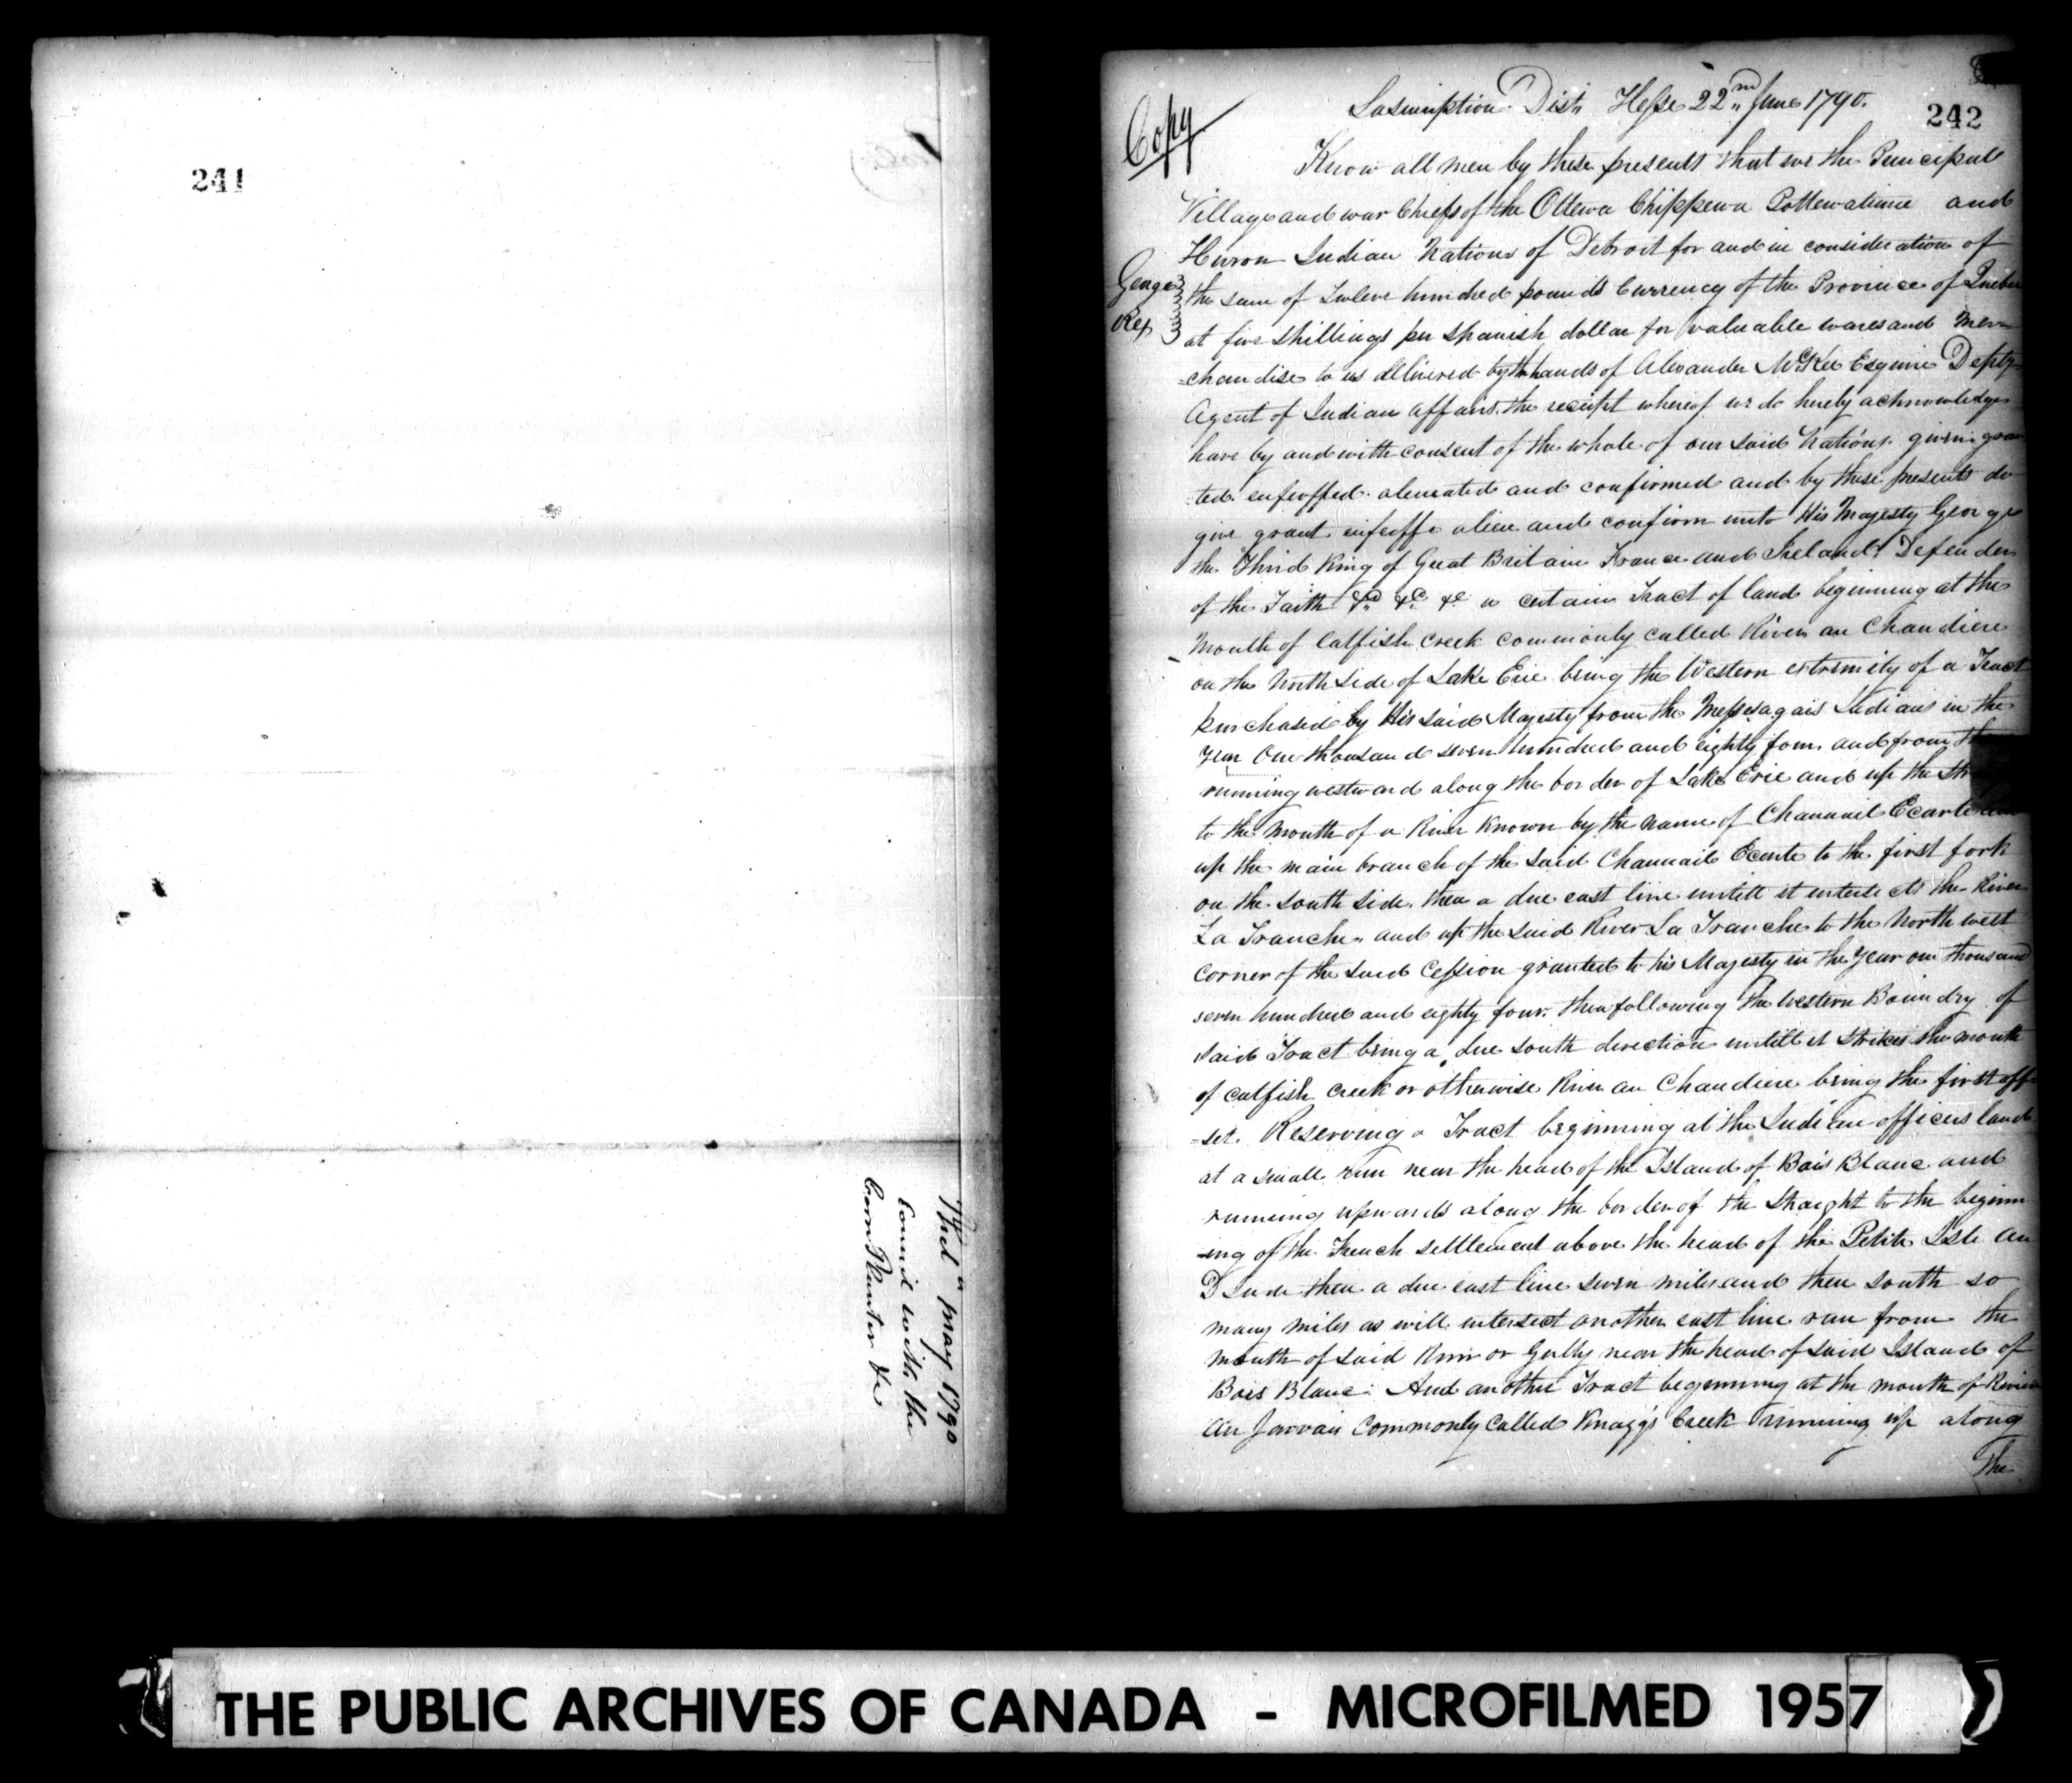 241
Thel" may 1790
Council with the
Corn Planter &c
242
Copy
Lasumption Dist. Hesse 22nd June 1790.
Know all men by these presents that we the Principal
Village and war Chiefs of the Ottewa Chippewa Pottewatimie and
Huron Indian Nations of Detroit for and in consideration of
George
Rex
the sum of Twelve hundred pounds Currency of the Province of Quebec
at five shillings per Spanish dollar for valuable wares and Mer-
-chandise to us delivered by the hands of Alexander McKee Esquire Depty
Agent of Indian affairs the receipt whereof we do hereby acknowledge
have by and with consent of the whole of our said Nations given gran
-ted enfeoffed alienated and confirmed and by these presents do
give grant enfeoffe alien and confirm unto His Majesty George
the Third King of Great Britain France and Ireland Defender
of the Faith &c &c &c a certain Tract of land beginning at the
Mouth of Catfish Creek commonly called River au Chaudiere
on the North Side of Lake Erie being the Western extremity of a Tract
purchased by His said Majesty from the Messesagais Indians in the
Year One thousand seven hundred and eighty four and from
running westward along the border of Lake Erie and up the
to the Mouth of a River Known by the name of Channail Ecarte
up the main branch of the said Channail Ecarte to the first fork
on the south side then a due east line untill it intersects the River
La Tranche and up the said River La Tranche to the North west
Corner of the said Cession granted to his Majesty in the Year one thousand
seven hundred and eighty four. then following the Western Boundry of
said Tract being a due south direction untill it strikes the mouth
of catfish creek or otherwise River au Chaudiere being the first off
-set. Reserving a Tract beginning at the Indian officers land
at a small run near the head of the Island of Bois Blanc and
running upwards along the border of the Straight to the beginn
-ing of the French settlement above the head of the Petite Isle au
D Inde then a due east line seven miles and then south so
many miles as will intersect another east line run from the
Mouth of said Run or Gully near the head of said Island of
Bois Blanc. And another Tract beginning at the mouth of River
au Jarvais Commonly called Knaggs Creek running up along
The
THE PUBLIC ARCHIVES OF CANADA - MICROFILMED 1957